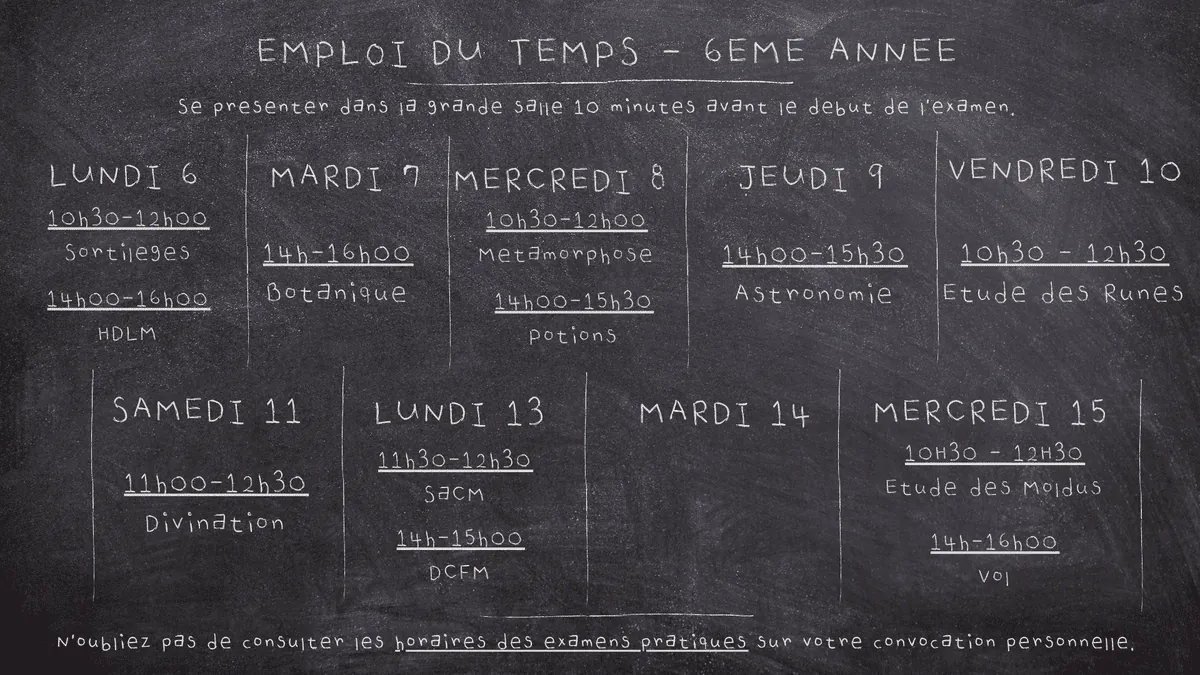 EMPLOI DU TEMPS - 6EME ANNEE
Se presenter dans la grande salle 10 minutes avant le debut de l'examen.
LUNDI 6
10h30-12h00
Sortileges
14h00-16h00
HDLM
MARDI 7
14h-16h00
Botanique
MERCREDI 8
10h30-12h00
Metamorphose
14h00-15h30
Potions
JEUDI 9
14h00-15h30
Astronomie
VENDREDI 10
10h30 - 12h30
Etude des Runes
SAMEDI 11
11h00-12h30
Divination
LUNDI 13
11h30-12h30
SACM
14h-15h00
DCFM
MARDI 14
MERCREDI 15
10H30 - 12H30
Etude des Moldus
14h-16h00
Vol
N'oubliez pas de consulter les horaires des examens pratiques sur votre convocation personnelle.